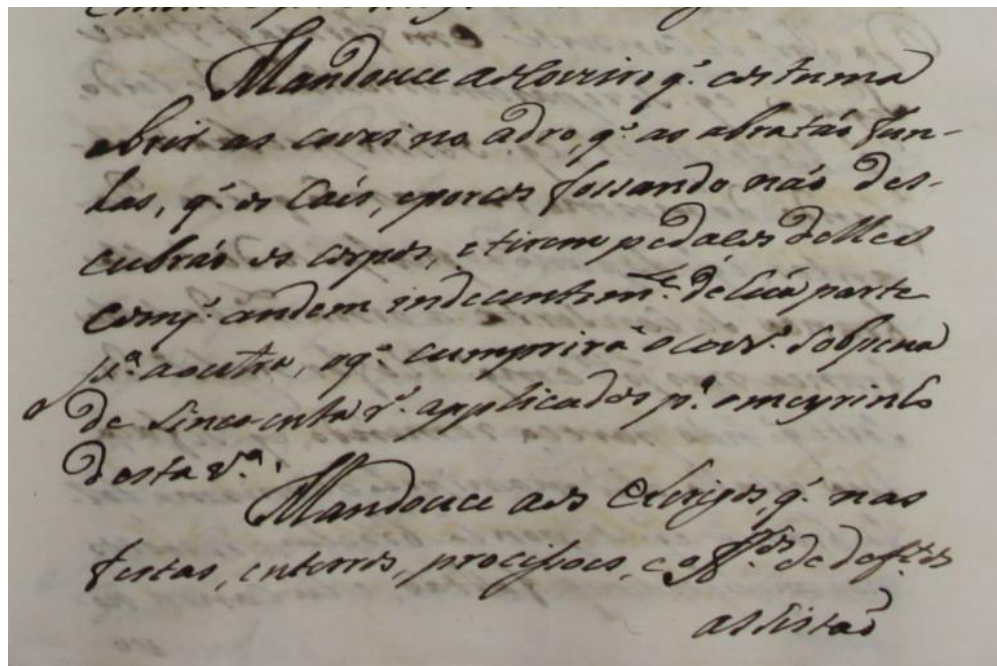 Mandouce ao Coveiro q. costuma
abrir as covas no adro, q. as abra tão fun-
das, q. os Caís, eporcos fossando não des-
cubrão os corpos, etirem pedaços delles
comq. andem indecentem.te de húa parte
p.ª aoutra, oq. cumprirá o cov.º sobpena
de sincoenta r.s applicados p.ª omeyrinho
desta v.ª
Mandouce aos Clerigos, q. nas
festas, enterros, procissoes, e off.os de def.tos
assistaõ